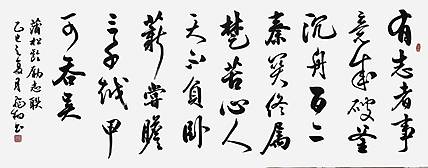 有志者事
竟成破釜
沉舟百二
秦关终属
楚苦心人
天不負卧
薪嘗膽
三千越甲
可吞吴
蒲松龄励志联
乙巳之夏月